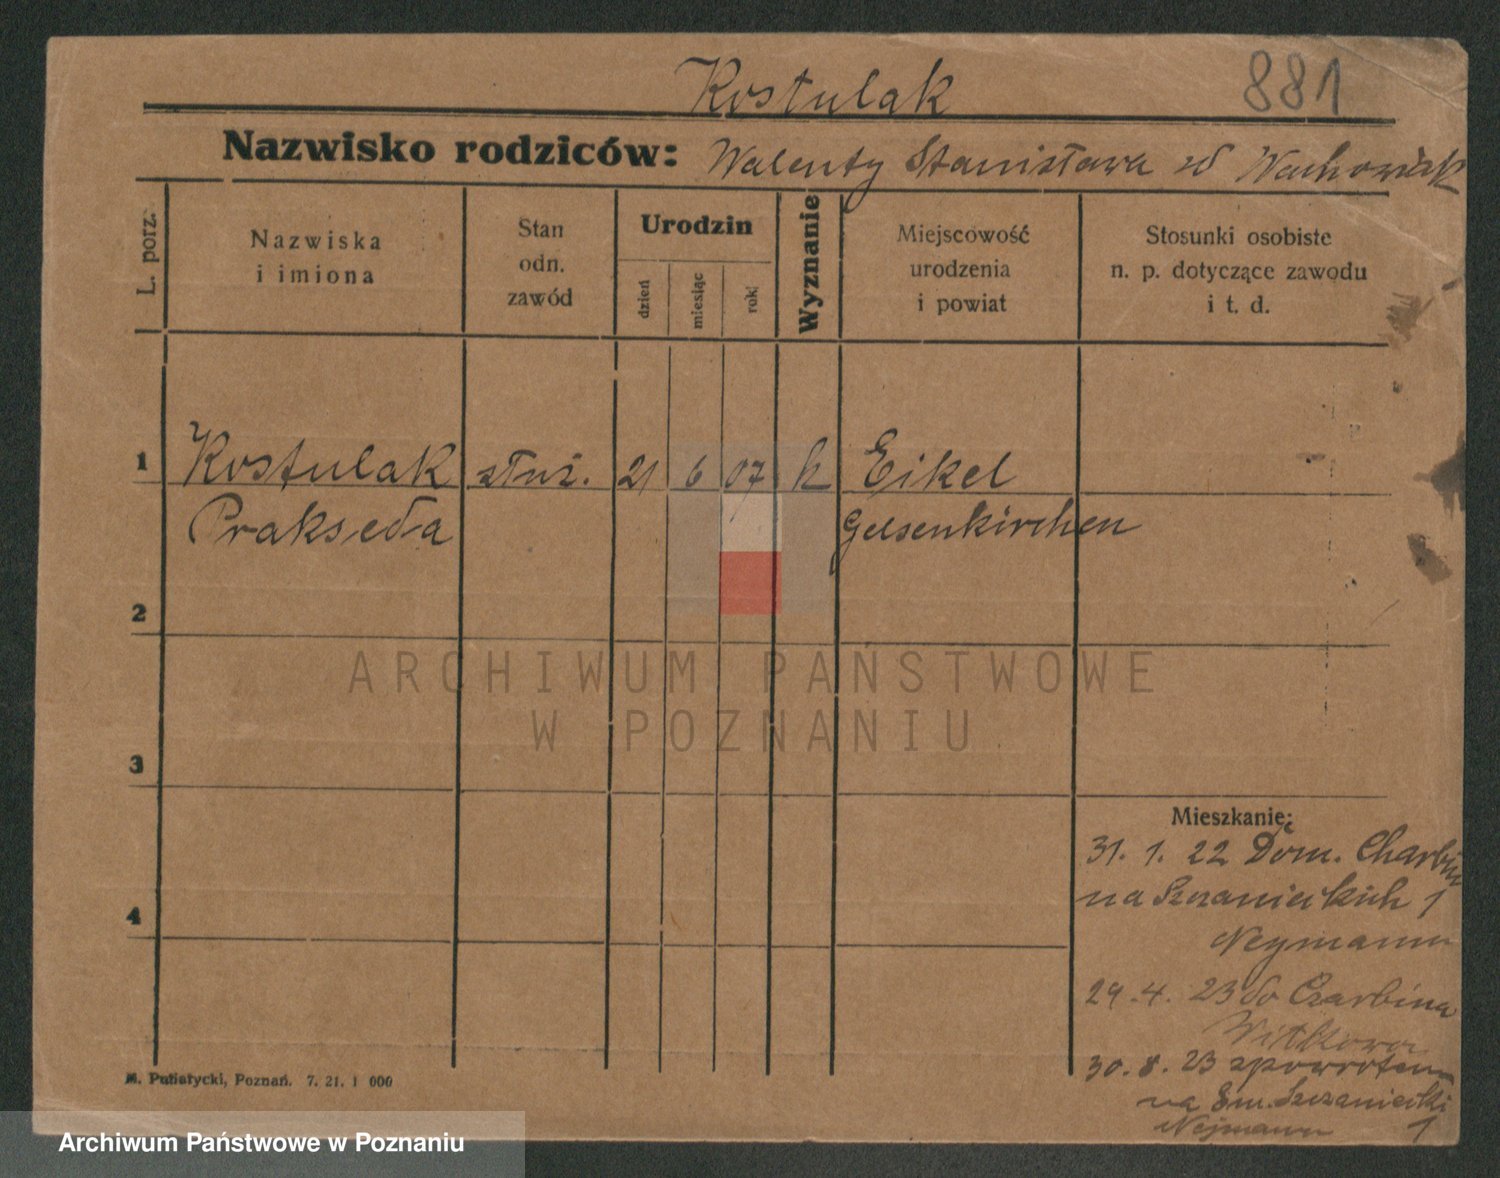 Kostulak
881
Nazwisko rodziców: Walenty Stanisława zd Wachowiak
L. porz.
Nazwiska
i imiona
Stan
odn.
zawód
Urodzin
dzień
miesiąc
rok
Wyznanie
Miejscowość
urodzenia
i powiat
Stosunki osobiste
n. p. dotyczące zawodu
i t. d.
1 Kostulak służ. 21 6 07 k Eikel
Prakseda Gelsenkirchen
2
ARCHIWUM PAŃSTWOWE
W POZNANIU
3
Mieszkanie:
31. 1. 22 Dom. Charbin
na Szczanieckich 1
4
Neymann
29. 4. 23 do Czarbina
Witkowo
30. 8. 23 zpowrotem
na Em. Szczaniecki
Nejmann 1
M. Putiatycki, Poznań. 7. 21. 1 000
Archiwum Państwowe w Poznaniu